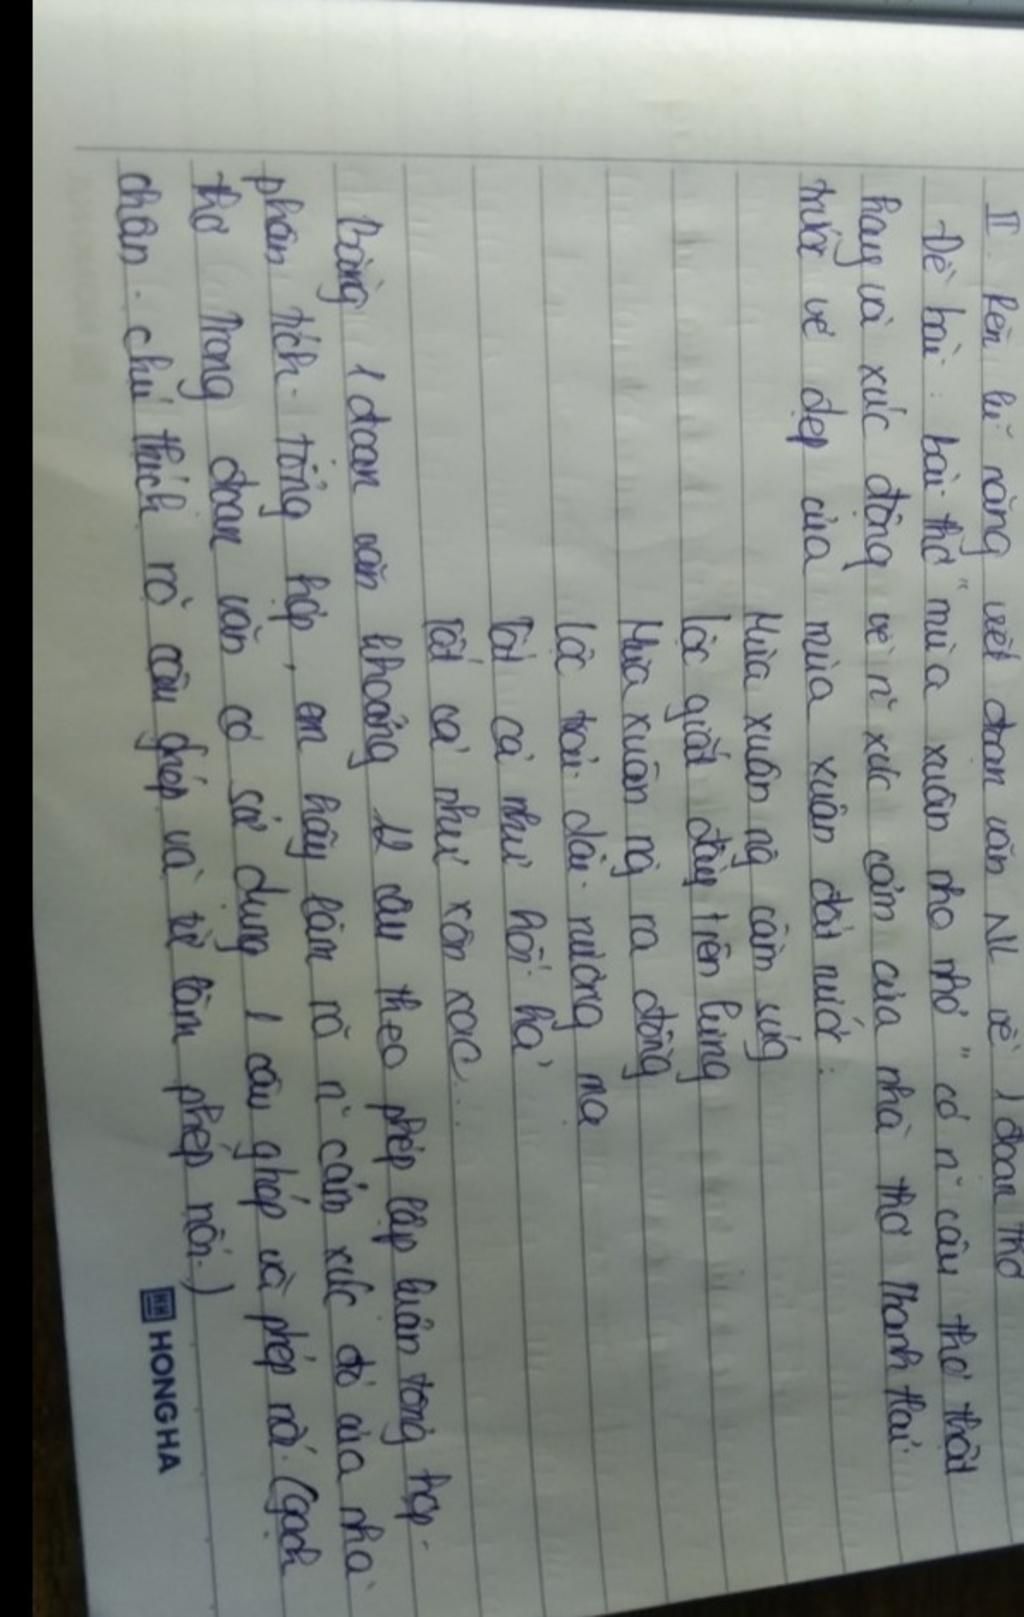 II. Rèn kĩ năng viết đoạn văn NL về 1 đoạn thơ
Đề bài: bài thơ "mùa xuân nho nhỏ" có n~ câu thơ thật
hay và xúc động về n~ xúc cảm của nhà thơ Thanh Hải
trước vẻ đẹp của mùa xuân đất nước:
Mùa xuân ng cầm súg
Lộc giắt đầy trên lưng
Mùa xuân ng ra đồng
Lộc trải dài nương mạ
Tất cả như hối hả
Tất cả như xôn xao...
Bằng 1 đoạn văn khoảng 12 câu theo phép lập luận tổng hợp -
phân tích - tổng hợp, em hãy làm rõ n~ cảm xúc đó của nhà
thơ trong đoạn văn có sử dụng 1 câu ghép và phép nối. (gạch
chân - chú thích rõ câu ghép và từ làm phép nối.)
HONG HA